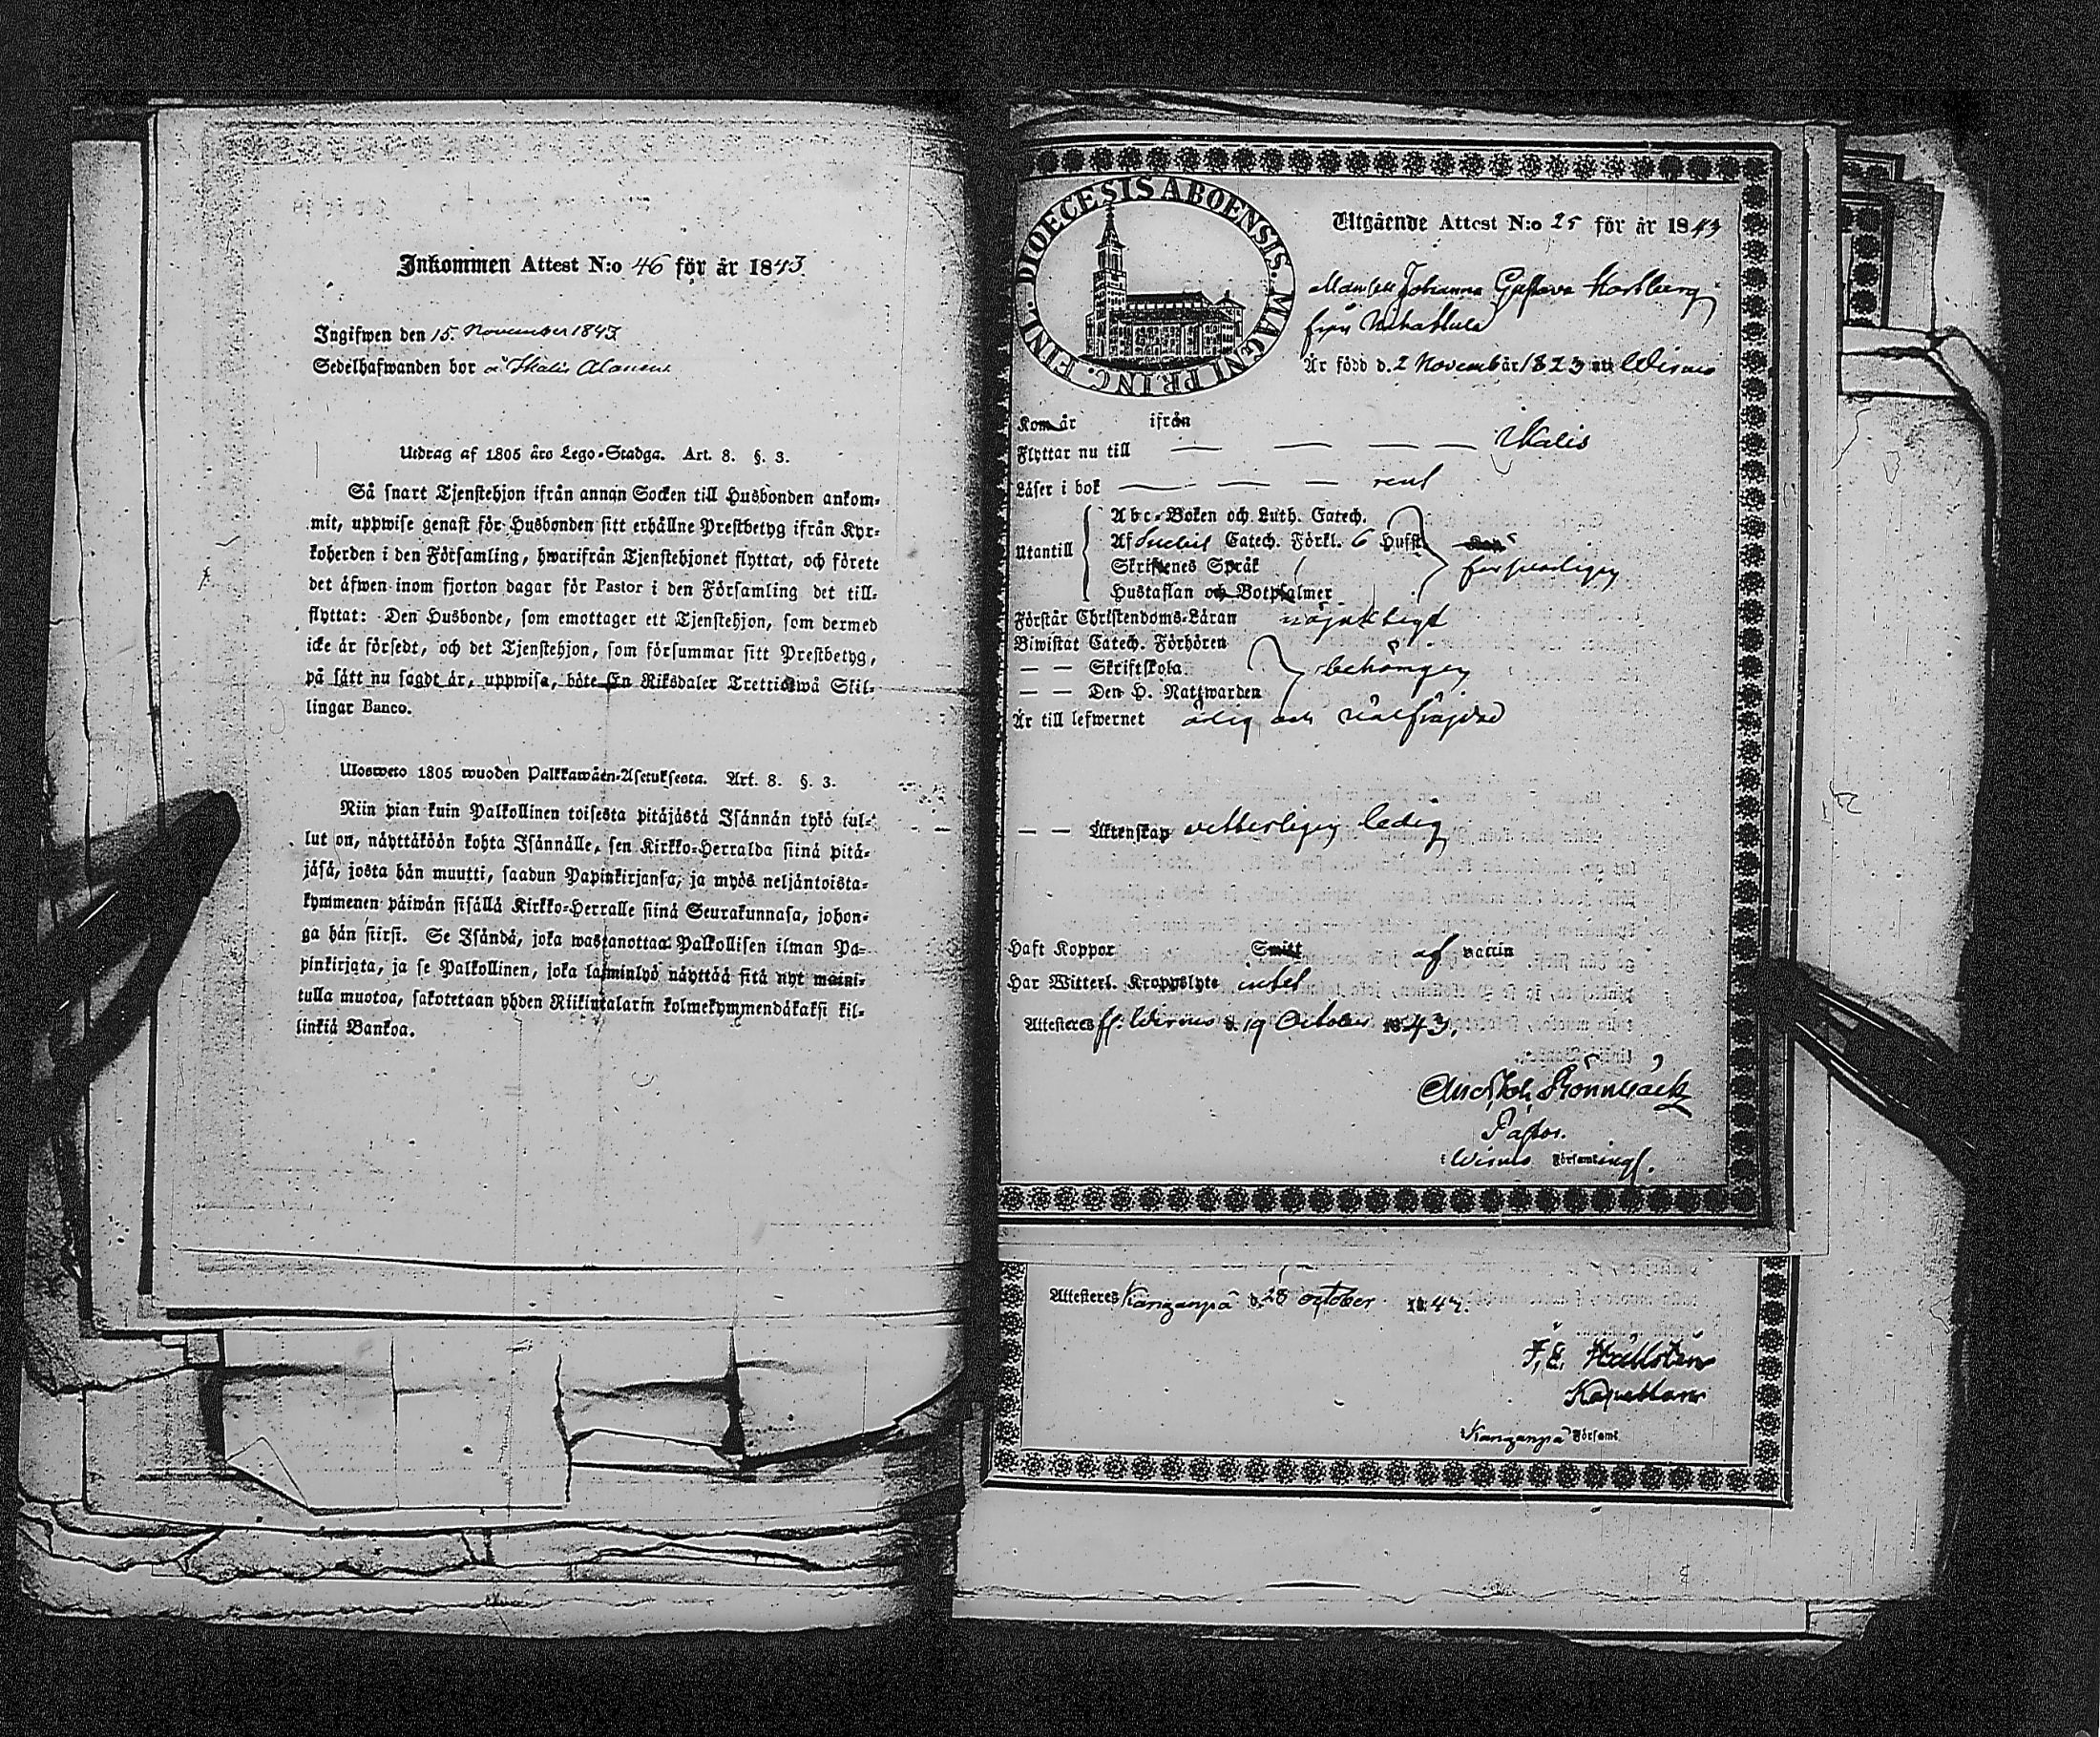 Inkommen Attest N:o 46 för år 1843.
Ingifwen den 15. November 1843
Sedelhafwanden bor å Ikalis Alanen.
Utdrag af 1805 års Lego-Stadga. Art. 8. §. 3.
Så snart Tjenstehjon ifrån annan Socken till Husbonden ankom-
mit, uppwise genast för Husbonden sitt erhållne Prestbetyg ifrån Kyr-
koherden i den Församling, hwarifrån Tjenstehjonet flyttat, och förete
det äfwen inom fjorton dagar för Pastor i den Församling det till-
flyttat: Den Husbonde, som emottager ett Tjenstehjon, som dermed
icke är försedt, och det Tjenstehjon, som försummar sitt Prestbetyg,
på sätt nu sagdt är, uppwisa, böte En Riksdaler Trettiotwå Skil-
lingar Banco.
Ulosweto 1805 wuoden Palkkawäen-Asetuksesta. Art. 8. §. 3.
Niin pian kuin Palkollinen toisesta pitäjästä Isännän tykö tul-
lut on, näyttäköön kohta Isännälle, sen Kirkko-Herralda siinä pitä-
jäsä, josta hän muutti, saadun Papinkirjansa; ja myös neljäntoista-
kymmenen päiwän sisällä Kirkko-Herralle siinä Seurakunnasa, johon-
ga hän siirsi. Se Isändä, joka wastanottaa Palkollisen ilman Pa-
pinkirjata, ja se Palkollinen, joka laiminlyö näyttää sitä nyt maini-
tulla muotoa, sakotetaan yhden Riikintalarin kolmekymmendäkaksi kil-
linkiä Bankoa.
DIOECESIS ABOENSIS. MAGNI PRINC. FINL.
Utgående Attest N:o 25 för år 1843
Mamsell Johanna Gustava
från
Är född d. 2 Novemb år 1823 i Wirmo
Kom år ifrån
Flyttar nu till — — — — Ikalis
Läser i bok — — — rent
Utantill
Abc-Boken och Luth. Catech.
Af Catech. Förkl. 6 Hufst.
Skriftenes Språk
Hustaflan och Botpsalmer
försvarligen
Förstår Christendoms-Läran nöjaktligt
Biwistat Catech. Förhören
— — Skriftskola
— — Den H. Nattwarden
behörigen
Är till lefwernet ärlig och välfräjdad
— — Äktenskap vetterligen ledig
Haft Koppor Smitt af vaccin
Har Witterl. Kroppslyte intet
Attesteres ff. Wirmo d. 19 October 1843.
Rönnbäck
Pastor.
i Wirmo Församlingf.
Attesteres Kanganpä d. 28 october 184
F. E. Hællstén
Kapellan
Kanganpä Församl